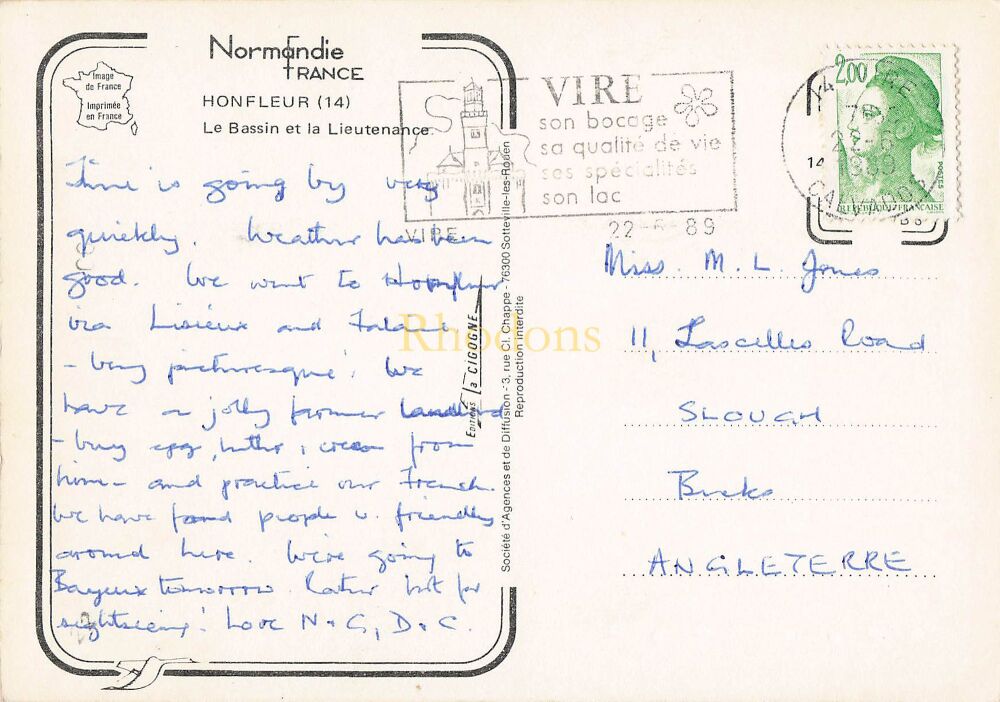 Normandie
FRANCE
Image
de France
Imprimée
en France
HONFLEUR (14)
Le Bassin et la Lieutenance
Time is going by very
quickly. Weather has been
good. We went to Honfleur
via Lisieux and Falaise
- very picturesque! We
have a jolly farmer landlord
- buy eggs, butter & cream from
him - and practice our French.
We have found people v. friendly
around here. We're going to
Bayeux tomorrow. Rather hot for
sightseeing! Love N & G, D & C.
Société d'Agences et de Diffusion - 3, rue Cl. Chappe - 76300 Sotteville-les-Rouen
Reproduction interdite
Editions la CIGOGNE
VIRE
son bocage
sa qualité de vie
ses spécialités
son lac
VIRE
22-6-89
14 VIRE
1989
14
CALVADOS
2,00
POSTES
REPUBLIQUE FRANCAISE
Miss. M. L. Jones
11, Lascelles Road
SLOUGH
Bucks
ANGLETERRE
Rhodons